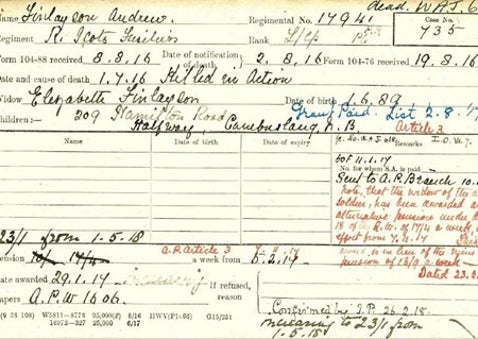 dead. W.A.S. 6
Name Finlayson Andrew. Regimental No. 17941 Case No.
Regiment R. Scots Fusiliers Rank L/Cp 735
Form 104-88 received 8.8.16 Date of notification of death 2.8.16 Form 104-76 received 19.8.16
Date and cause of death 1.7.16 Killed in Action
Widow Elizabeth Finlayson Date of birth 1.6.89
Children:— 209 Hamilton Road Grant Paid. List 2.8.17
Halfway, Cambuslang, N.B. Article 3
Name Date of birth Remarks
bof 11.1.17
No. for whom S.A. is paid—
Sent to A.P. Branch 10.
note, that the widow of the a
soldier, has been awarded an
alternative pension under A
16 of the R.W. of 17/4 a week,
effect from
23/1 from 1-5-18
Pension A.P. Article 3 a week from
pension of 13/9 a week
Date awarded 29.1.17 If refused, reason Dated 23.2.
Papers A.P.W 1606.
Confirmed by I.P. 26.2.18.
(9 38 108) W5811—8778 25,000(2) 8/16 HWV(P1466) G15/251
16972—327 25,000 6/17
increasing to 23/1 from
1-5-18